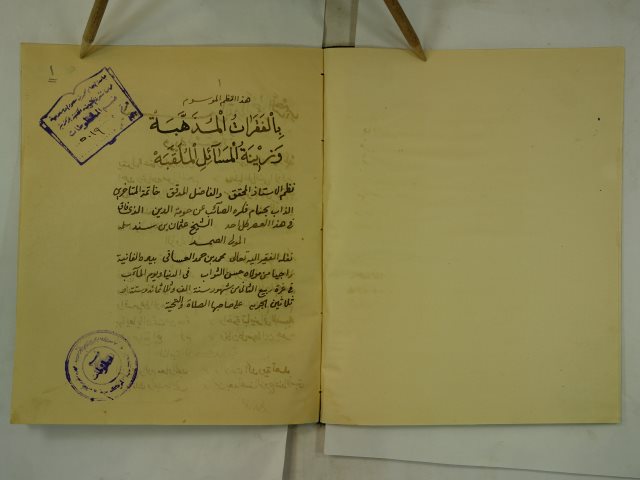 ١
١
هذا النظم الموسوم
بِالفَقَرَاتُ الْمُذَهَّبَةُ
وَزِينَةُ الْمَسَآئِلِ الْمُلَقَّبَةْ
نظم الاستاذ المحقق والفاضل المدقق خاتمة المتأخرين
الذاب بحسام فكره الصائب عن حومة الدين الذي فاق
في هذا العصر كل احد الشيخ عثمان بن سند سلمه
المولى الصمد
نقله الفقير اليه تعالى محمد بن حمد العسافي بيده الفانية
راجيا من مولاه حسن الثواب في الدنيا ويوم المآب
في غرة ربيع الثاني من شهور سنة الف وثلاثمائة وستة
ثلاثين لهجرية على صاحبها الصلاة والتحية
قسم المخطوطات
٥٠١٩